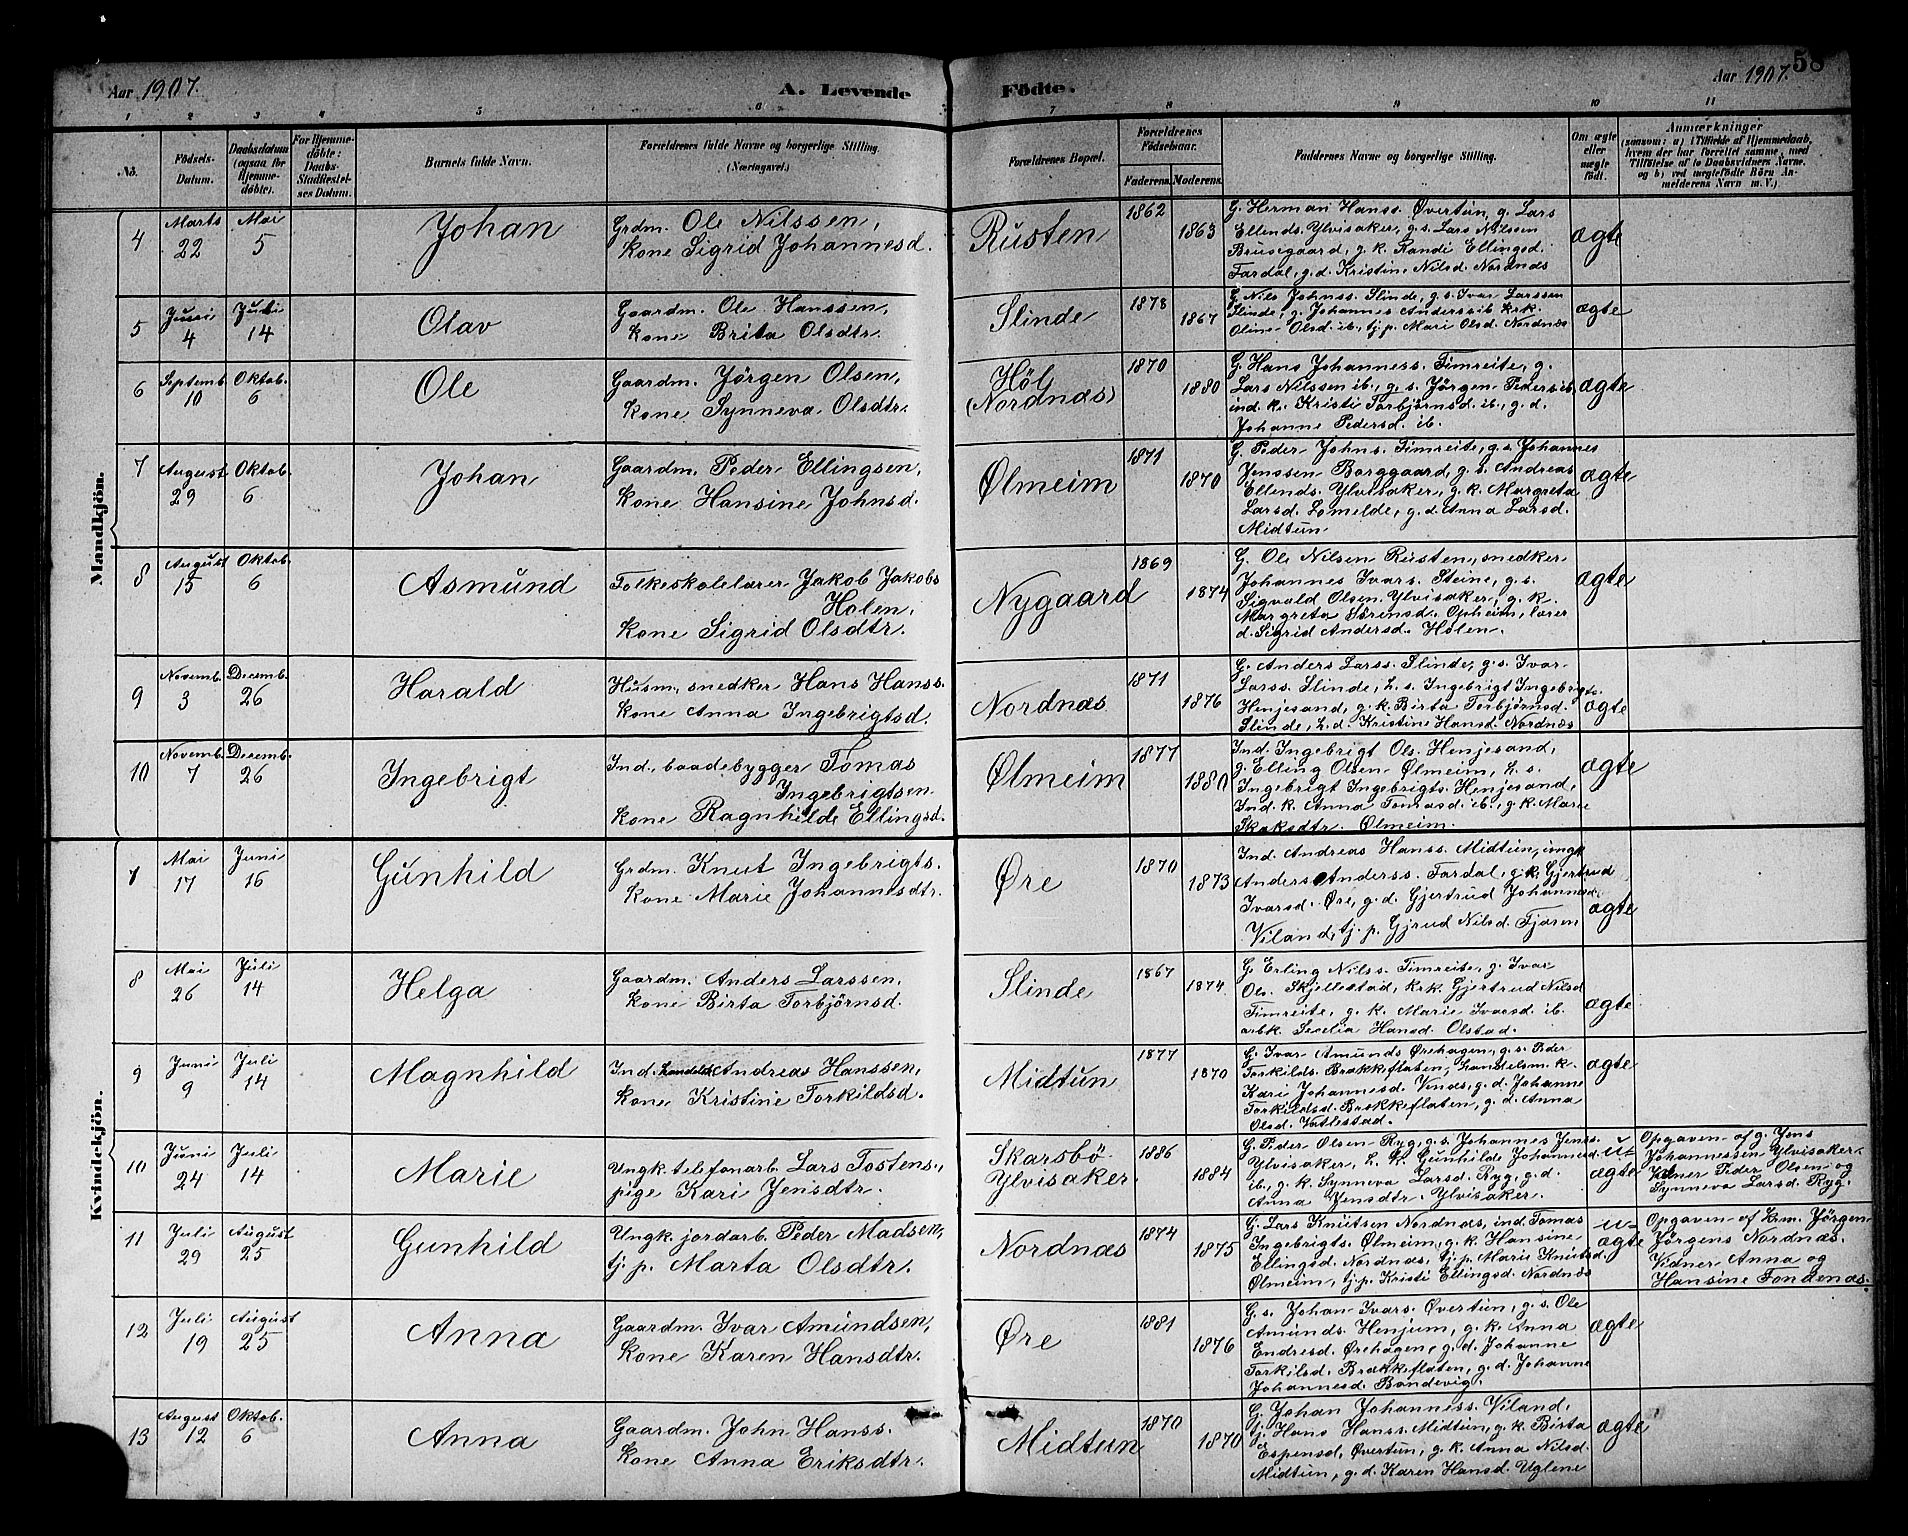 58
Aar 1907. A. Levende Födte. Aar 1907.
1 2 3 4 5 6 7 8 9 10 11
No. Födsels-Datum. Daabsdatum (ogsaa for Hjemmedöbte). For Hjemmedöbte: Daabs-Stadfæstelses Datum. Barnets fulde Navn. Forældrenes fulde Navne og borgerlige Stilling. (Næringsvei.) Forældrenes Bopæl. Forældrenes Födselsaar. Faderens. Moderens. Faddernes Navne og borgerlige Stilling. Om ægte eller uægte födt. Anmærkninger (saasom: a) i Tilfælde af Hjemmedaab, hvem der har forrettet samme, med Tilföielse af to Daabsvidners Navne, og b) ved uægtefödte Börn Anmelderens Navn m. V.)
Mandkjön.
4 Marts 22 Mai 5 Johan Grdm. Ole Nilssen,
Kone Sigrid Johannesd.
Rusten 1862 1863
G. Herman Hanss. Øvertun, g. Lars
Ellends. Ylvisaker, g.s. Lars Nilssen
Brusegaard, g.k. Randi Ellingsd.
Fardal, g.d. Kristine Nilsd. Nordnæs
ægte
5 Juni 4 Juli 14 Olav Gaardm. Ole Hanssen,
Kone Brita Olsdtr.
Slinde 1878 1867
G. Nils Johnss. Slinde, g.s. Ivar Larssen
Slinde, g. Johannes Anderss ib. krk.
Oline Olsd. ib., tj.p. Mari Olsd. Nordnæs
ægte
6 Septemb. 10 Oktob. 6 Ole Gaardm. Jörgen Olsen,
Kone Synneva Olsdtr.
Höl (Nordnæs) 1870 1880
G. Hans Johanness. Timreite, g.
Lars Nilssen ib., g.s. Jörgen Peders ib.,
ind. k. Kristi Torbjörnsd. ib., g.d.
Johanne Pedersd. ib.
ægte
7 August 29 Oktob. 6 Johan Gaardm. Peder Ellingsen,
Kone Hansine Johnsd.
Ølmeim 1871 1870
G. Peder Johns. Timreite, g.s. Johannes
Jenssen Borggaard, g.s. Andreas
Ellends. Ylvisaker, g.k. Margreta
Larsd. Lomelde, g.d. Anna Larsd.
Midtun.
ægte
8 August 15 Oktob. 6 Asmund Folkeskolelærer Jakob Jakobs
Holen,
Kone Sigrid Olsdtr.
Nygaard 1869 1874
G. Ole Nilsen Rusten, snedker
Johannes Ivars. Steine, g.s.
Sigvald Olsen Ylvisaker, g.k.
Margreta Sörensd. Opheim, lærer
d. Sigrid Andersd. Holen.
ægte
9 Novemb. 3 Decemb. 26 Harald Husm., snedker Hans Hanss.
Kone Anna Ingebrigtsd.
Nordnæs 1871 1876
G. Anders Larss. Slinde, g.s. Ivar
Larss. Slinde, h.s. Ingebrigt Ingebrigts.
Henjesand, g.k. Birta Torbjørnsd.
Slinde, h.d. Kristine Hansd. Nordnæs
ægte
10 Novemb. 7 Decemb. 26 Ingebrigt Ind., baadebygger Tomas
Ingebrigtsen
Kone Ragnhilde Ellingsd.
Ølmeim 1877 1880
Ind. Ingebrigt Ols. Henjesand,
g. Elling Olsen Ølmeim, h.s.
Ingebrigt Ingebrigts. Henjesand,
Ind. k. Anna Tomasd. ib., g.k. Marie
Skaksdtr. Ølmeim.
ægte
Kvindekjön.
7 Mai 17 Juni 16 Gunhild Grdm. Knut Ingebrigts.
Kone Marie Johannesdtr.
Øre 1870 1873
Ind. Andreas Hanss. Midtun, ungk
Anders Anderss. Fardal, g.k. Gjertrud
Ivarsd. Øre, g.d. Gjertrud Johannesd.
Viland, tj.p. Gjrud Nilsd. Fjæren
ægte
8 Mai 26 Juli 14 Helga Gaardm. Anders Larssen,
Kone Birta Torbjörnsd.
Slinde 1867 1874
G. Erling Nilss. Timreite, g. Ivar
Ols. Skjellestad, krk. Gjertrud Nilsd
Timreite, g.k. Marie Ivarsd. ib.
arbk. Secelia Hansd. Olstad.
ægte
9 Juni 9 Juli 14 Magnhild Ind. handelsk Andreas Hanssen,
Kone Kristine Torkildsd.
Midtun 1877 1870
G. Ivar Amunds Ørehagen, g.s. Peder
Torkilds. Brækkeflaten, handelsm. k.
Kari Johannesd. Vinæs, g.d. Johanne
Torkildsd. Brækkeflaten, g.d. Anna
Olsd. Vatlestad.
ægte
10 Juni 24 Juli 14 Marie Ungk. telefonarb. Lars Tostens.,
pige Kari Jensdtr.
Skarsbö Ylvisaker. 1886 1884
G. Peder Olsen Ryg, g.s. Johannes Jenss.
Ylvisaker, h.k. Gunhilde Johannesd.
ib., g.k. Synneva Larsd. Ryg, g.d.
Anna Jensdtr. Ylvisaker.
u-ægte
Opgaven af g. Jens
Johannessen Ylvisaker.
Vidner Peder Olsen og
Synneva Larsd. Ryg.
11 Juli 29 August 25 Gunhild Ungk. jordarb. Peder Madsen,
tj.p. Marta Olsdtr.
Nordnæs 1874 1875
G. Lars Knutsen Nordnæs, ind. Tomas
Ingebrigts. Ølmeim, g.k. Hansine
Ellingsd. Nordnæs, tj.p. Marie Knutsd.
Ølmeim, tj.p. Kristi Ellingsd. Nordnæs
u-ægte
Opgaven af krm. Jörgen
Jörgens Nordnæs.
Vidner Anna og
Hansine Fondenæs.
12 Juli 19 August 25 Anna Gaardm. Ivar Amundsen,
Kone Karen Hansdtr.
Øre 1881 1876
G.s. Johan Ivars. Øvertun, g.s. Ole
Amunds. Henjum, g.k. Anna
Endresd. Ørehagen, g.d. Johanne
Torkilsd. Brækkeflaten, g.d. Johanne
Johannesd. Bondevig.
ægte
13 August 12 Oktob. 6 Anna Gaardm. John Hanss.
Kone Anna Eriksdtr.
Midtun 1870 1870
G. Johan Johanness. Viland,
g. Hans Hanss. Midtun, g.k. Birta
Espensd. Øvertun, g.k. Anna Nilsd.
Midtun, g.d. Karen Hansd. Uglene
ægte